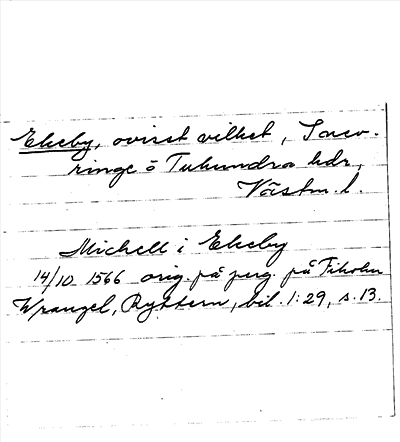 Ekeby, ovisst vilket, Snev-
ringe o Tuhundra hdr,
Västm. l.
Michell i Ekeby
14/10 1566 orig. på perg. på Tiholm
Wrangel, Ryttern, bil. 1:29, s. 13.